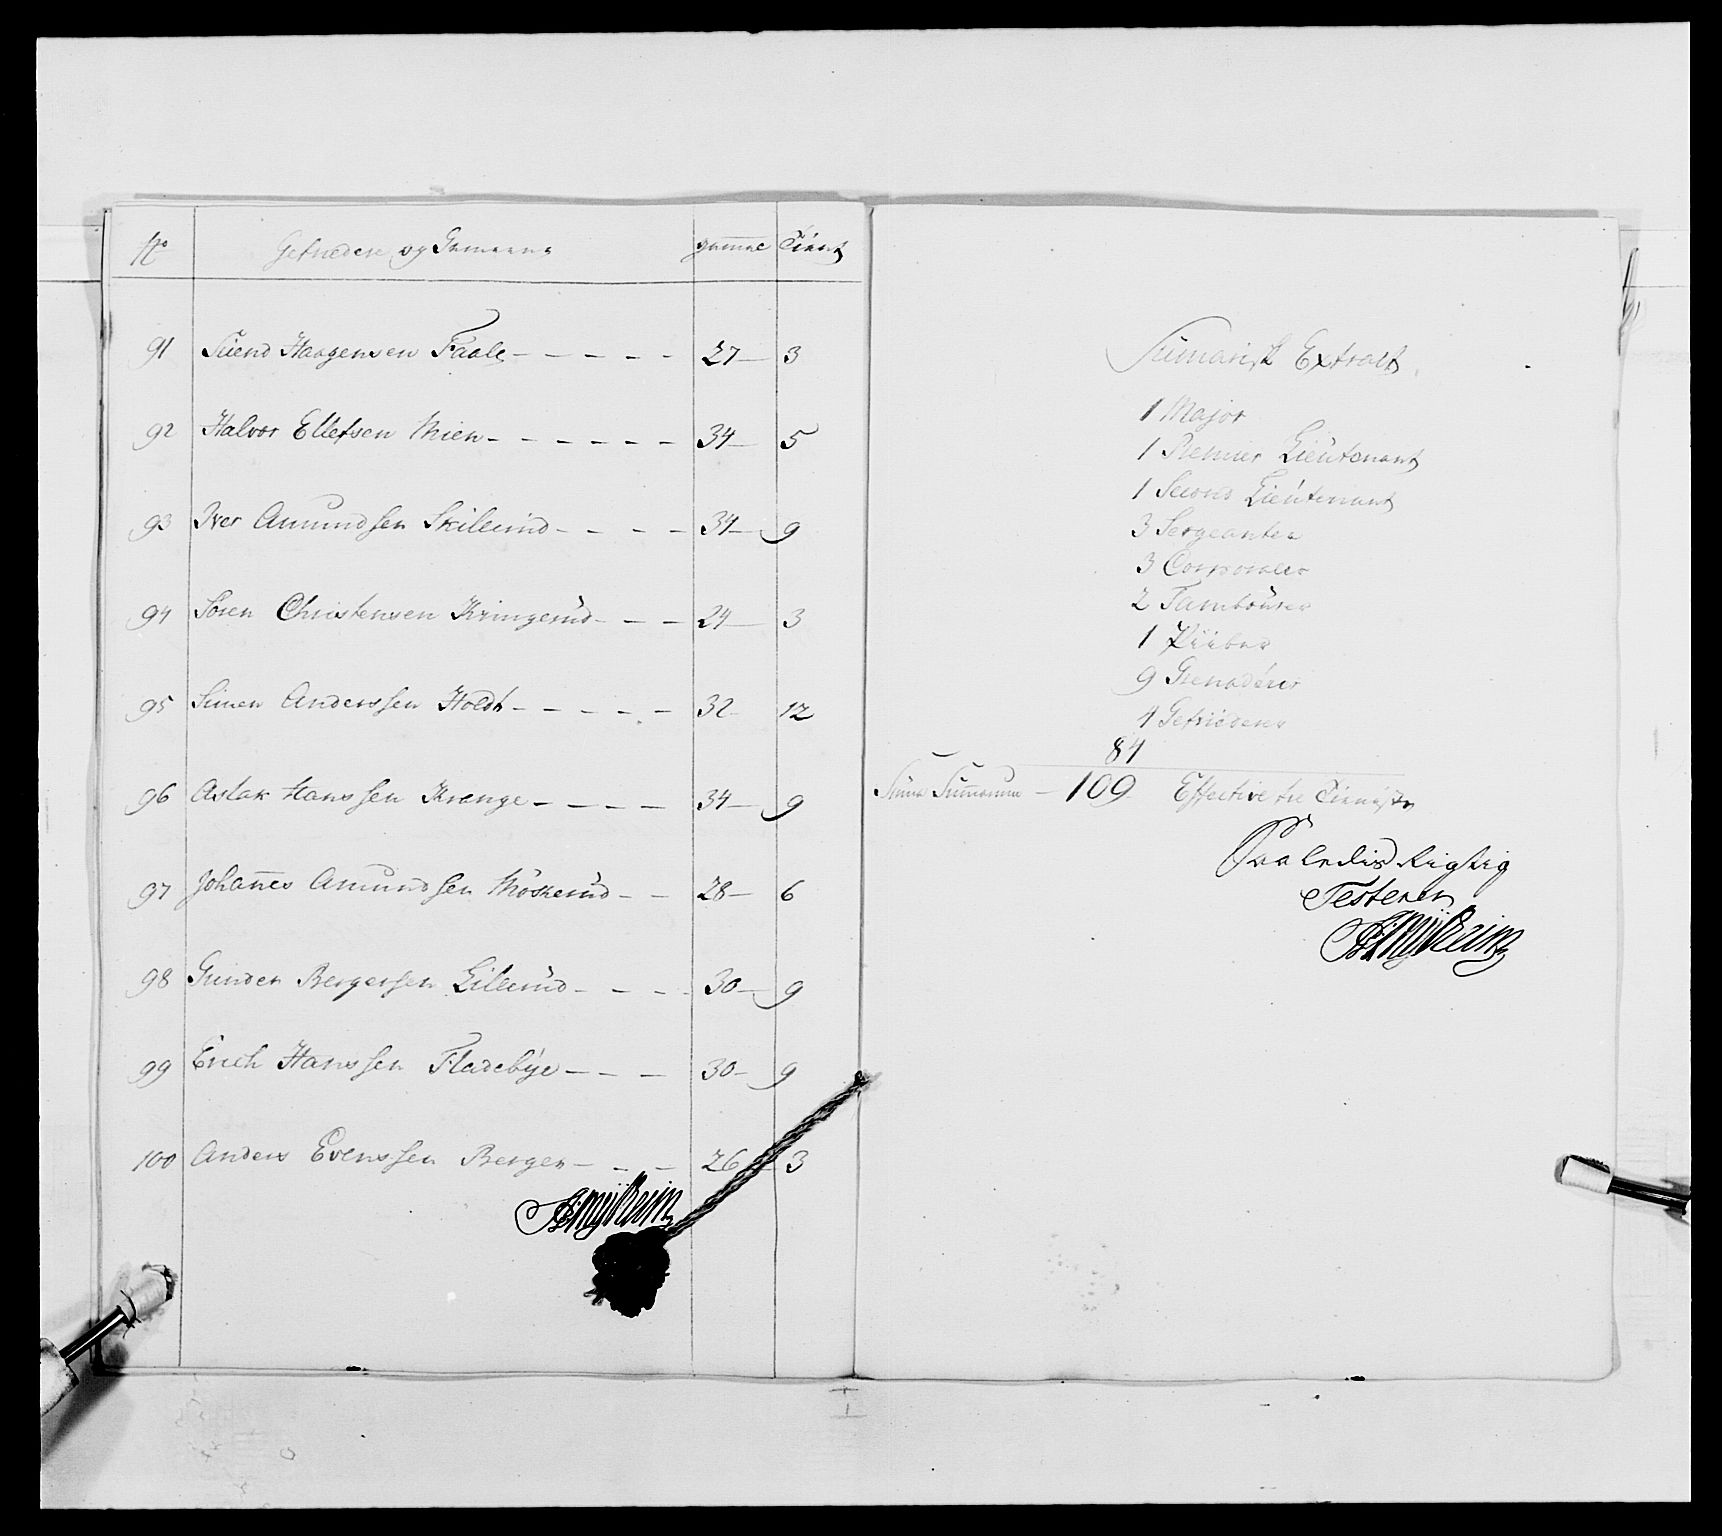 No Gefriedere og Gemeene gammel Tient
91 Süend Haagensen Faale 27 3
92 Halvor Ellefsen Mien 34 5
93 Iver Amundsen Skillerüd 34 9
94 Sören Christensen Kringerüd 24 3
95 Simen Anderssen Holdt 32 12
96 Aslak Hanssen Krange 34 9
97 Johannes Amundsen Möskerüd 28 6
98 Gunder Bergersen Lillerüd 30 9
99 Erich Hanssen Fladebÿe 30 9
100 Anders Evenssen Berger 26 3
Sumarisk Extract
1 Major
1 Premier Lieütenant
1 Second Lieütenant
3 Sergeanter
3 Corporaler
2 Tambourer
1 Piiber
9 Grenadérer
4 Gefriedere
84
Suma Summarum 109 Effective til Tieniste
Saaledis Rigtig
Testerer